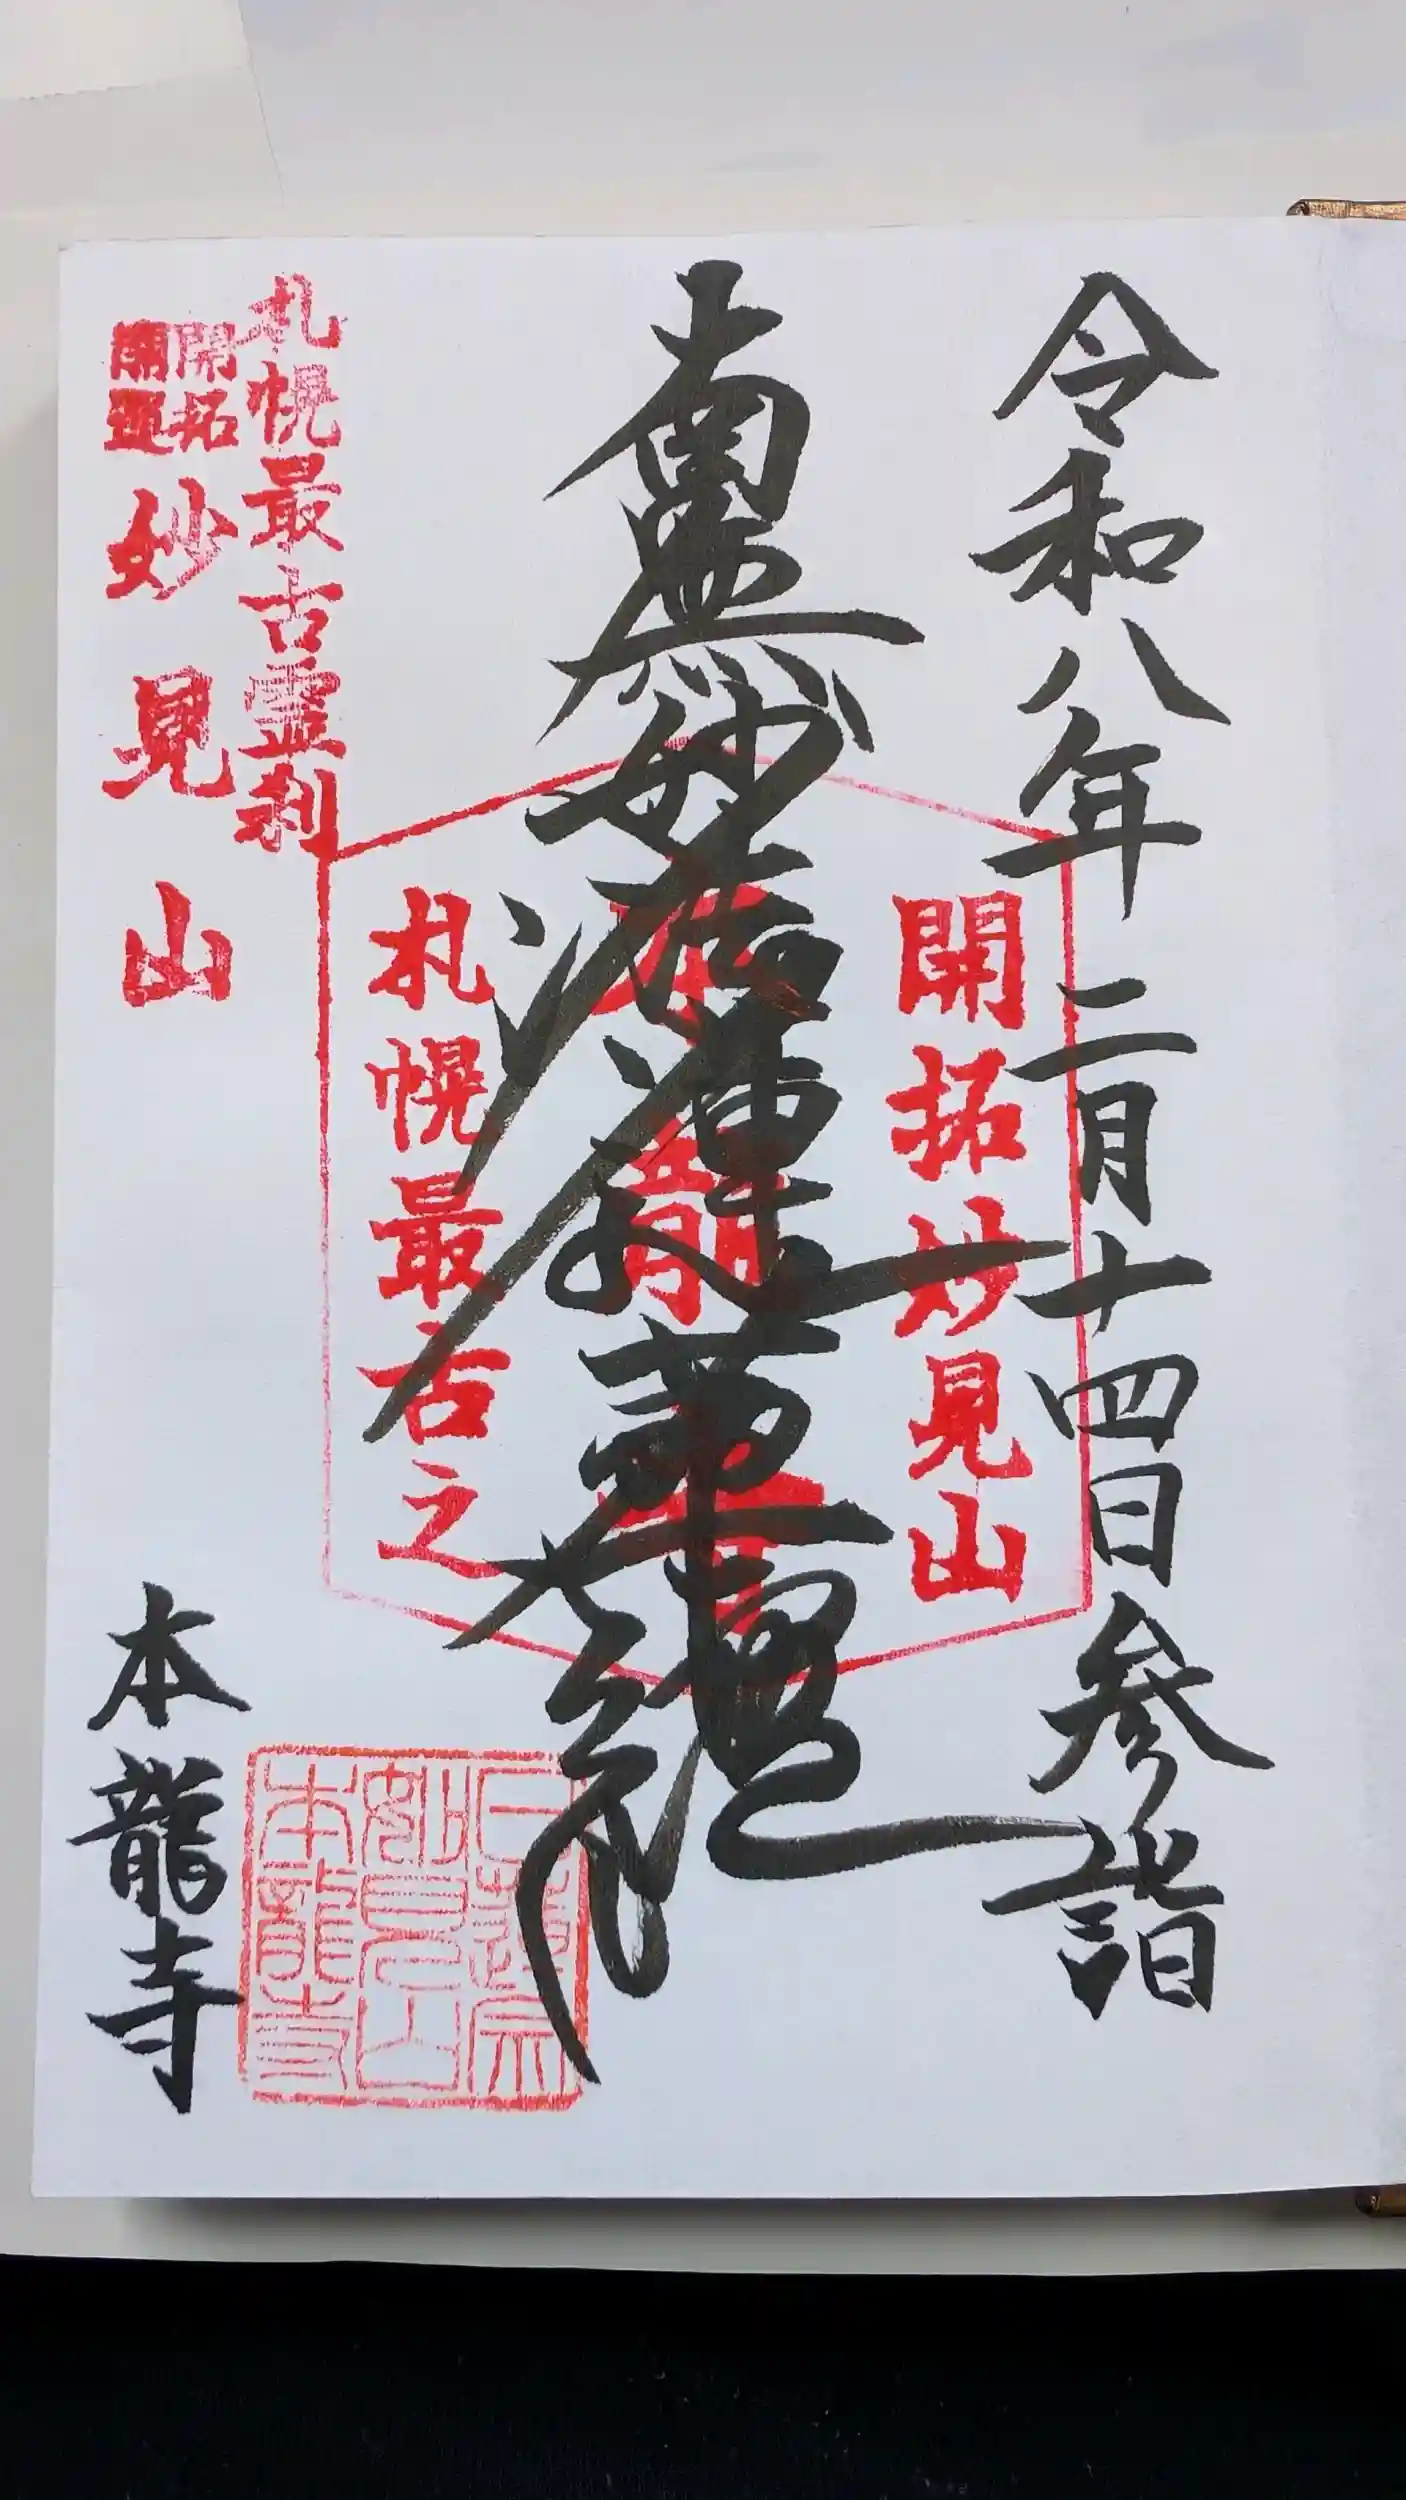 令和八年二月十四日参詣
開拓妙見山
南無妙法蓮華経
本龍寺
札幌最古之
札幌最古霊刹
開拓
開運
妙見山
日蓮宗
妙見山
本龍寺
本龍寺